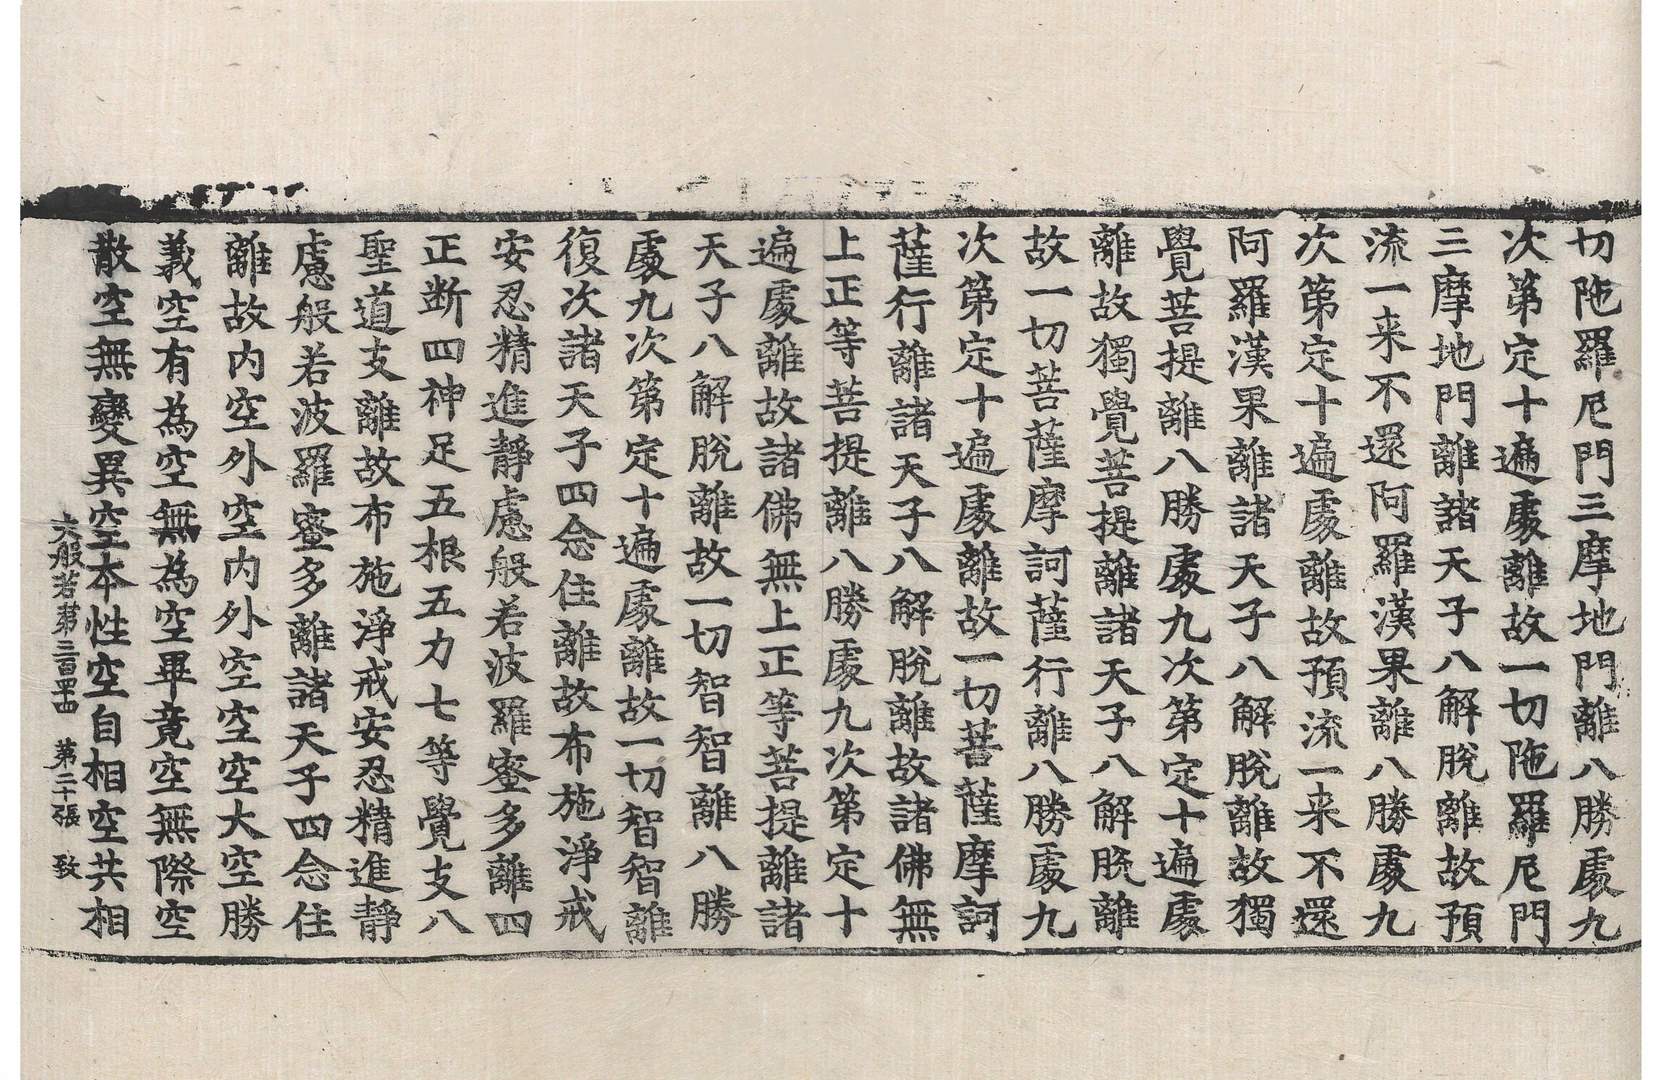 切陁羅尼門三摩地門離八勝處九
次第定十遍處離故一切陁羅尼門
三摩地門離諸天子八解脫離故預
流一来不還阿羅漢果離八勝處九
次第定十遍處離故預流一来不還
阿羅漢果離諸天子八解脫離故獨
覺菩提離八勝處九次第定十遍處
離故獨覺菩提離諸天子八解脫離
故一切菩薩摩訶薩行離八勝處九
次第定十遍處離故一切菩薩摩訶
薩行離諸天子八解脫離故諸佛無
上正等菩提離八勝處九次第定十
遍處離故諸佛無上正等菩提離諸
天子八解脫離故一切智智離八勝
處九次第定十遍處離故一切智智離
復次諸天子四念住離故布施淨戒
安忍精進靜慮般若波羅蜜多離四
正断四神足五根五力七等覺支八
聖道支離故布施淨戒安忍精進靜
慮般若波羅蜜多離諸天子四念住
離故内空外空内外空空空大空勝
義空有為空無為空畢竟空無際空
散空無變異空本性空自相空共相
大般若第三百四十四 第二十張 致